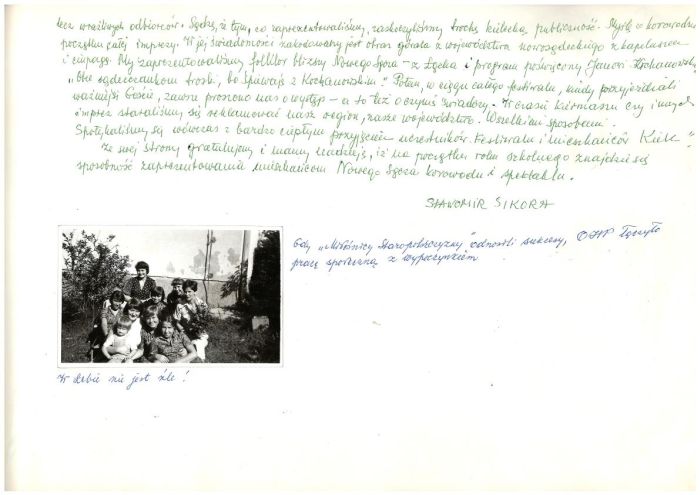 lecz wrażliwych odbiorców. Sądzę, że tym, co zaprezentowaliśmy, zaskoczyliśmy trochę kielecką publiczność. Myślę o korowodzie
początku całej imprezy. W jej świadomości zakodowany jest obraz górala z województwa nowosądeckiego z kapeluszem
i ciupagą. My zaprezentowaliśmy folklor bliższy Nowego Sącza – z Łącka i program poświęcony Janowi Kochanowskiemu
"Obce sądeczankom troski, bo śpiewają z Kochanowskim." Potem, w ciągu całego festiwalu, kiedy przyjeżdżali
ważniejsi Goście, zawsze proszono nas o występ – a to też o czymś świadczy. W czasie kiermaszu czy innych
imprez staraliśmy się reklamować nasz region, nasze województwo. Wszelkimi sposobami.
Spotykaliśmy się wówczas z bardzo ciepłym przyjęciem uczestników Festiwalu i mieszkańców Kielc.
Ze swej strony gratulujemy i mamy nadzieję, iż na początku roku szkolnego znajdzie się
sposobność zaprezentowania mieszkańcom Nowego Sącza korowodu i spektaklu.
SŁAWOMIR SIKORA
Gdy "Miłośnicy Staropolszczyzny" odnosili sukcesy, OHP łączyło
pracę społeczną z wypoczynkiem
W dębie nie jest źle!